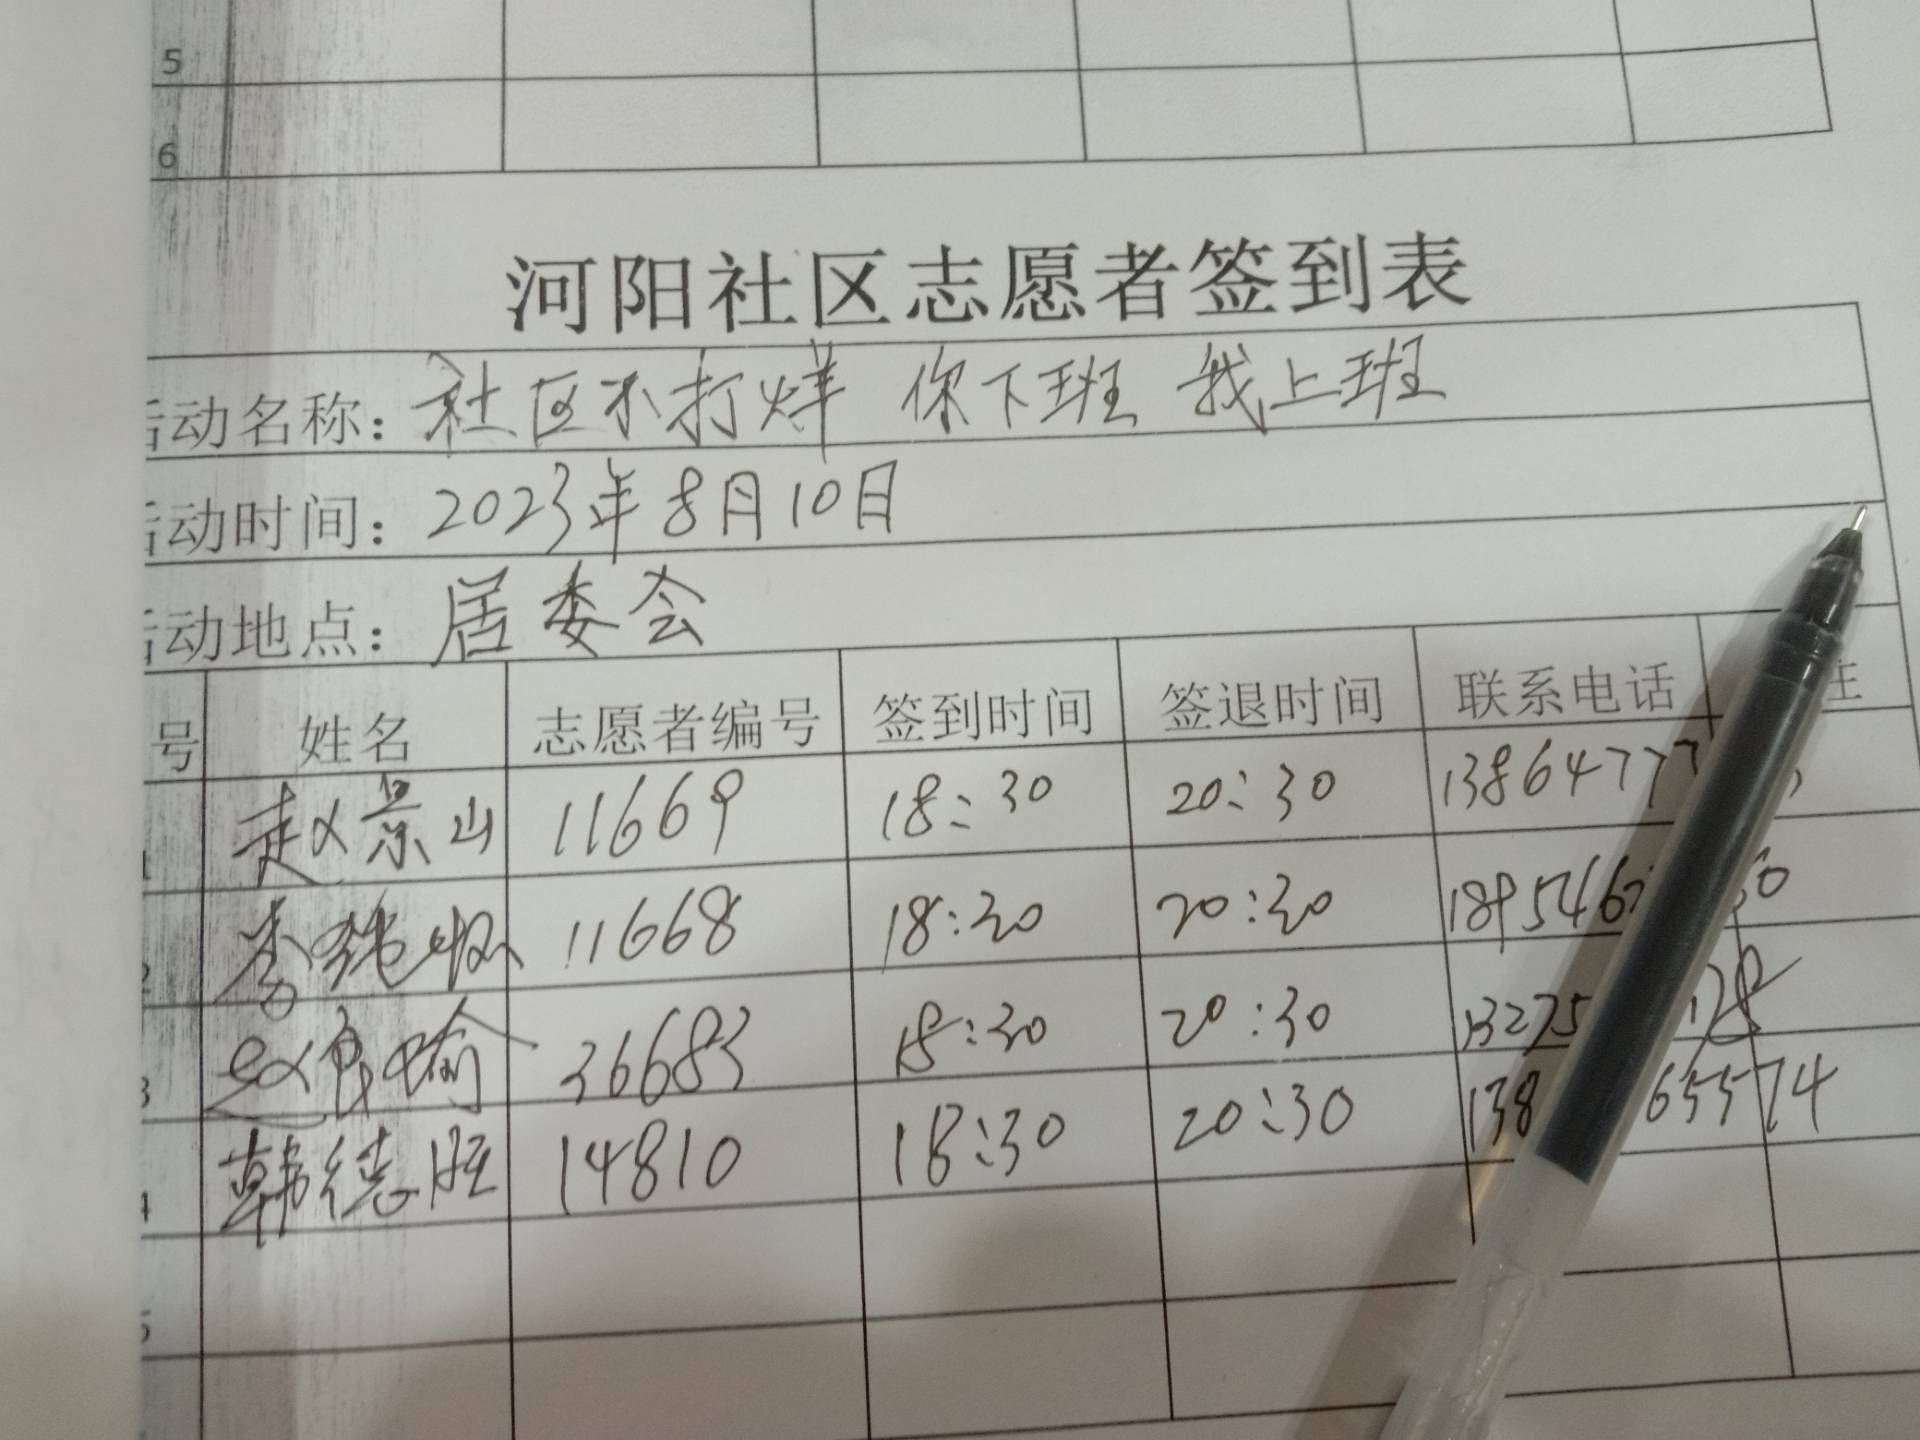 5
6
河阳社区志愿者签到表
活动名称：社区不打烊 你下班 我上班
活动时间：2023年8月10日
活动地点：居委会
号 姓名 志愿者编号 签到时间 签退时间 联系电话 注
1 赵景山 11669 18:30 20:30 13864777
2 李 11668 18:30 20:30 1895466
3 赵良瑜 36683 18:30 20:30 13275 128
4 韩德胜 14810 18:30 20:30 138 65574
5